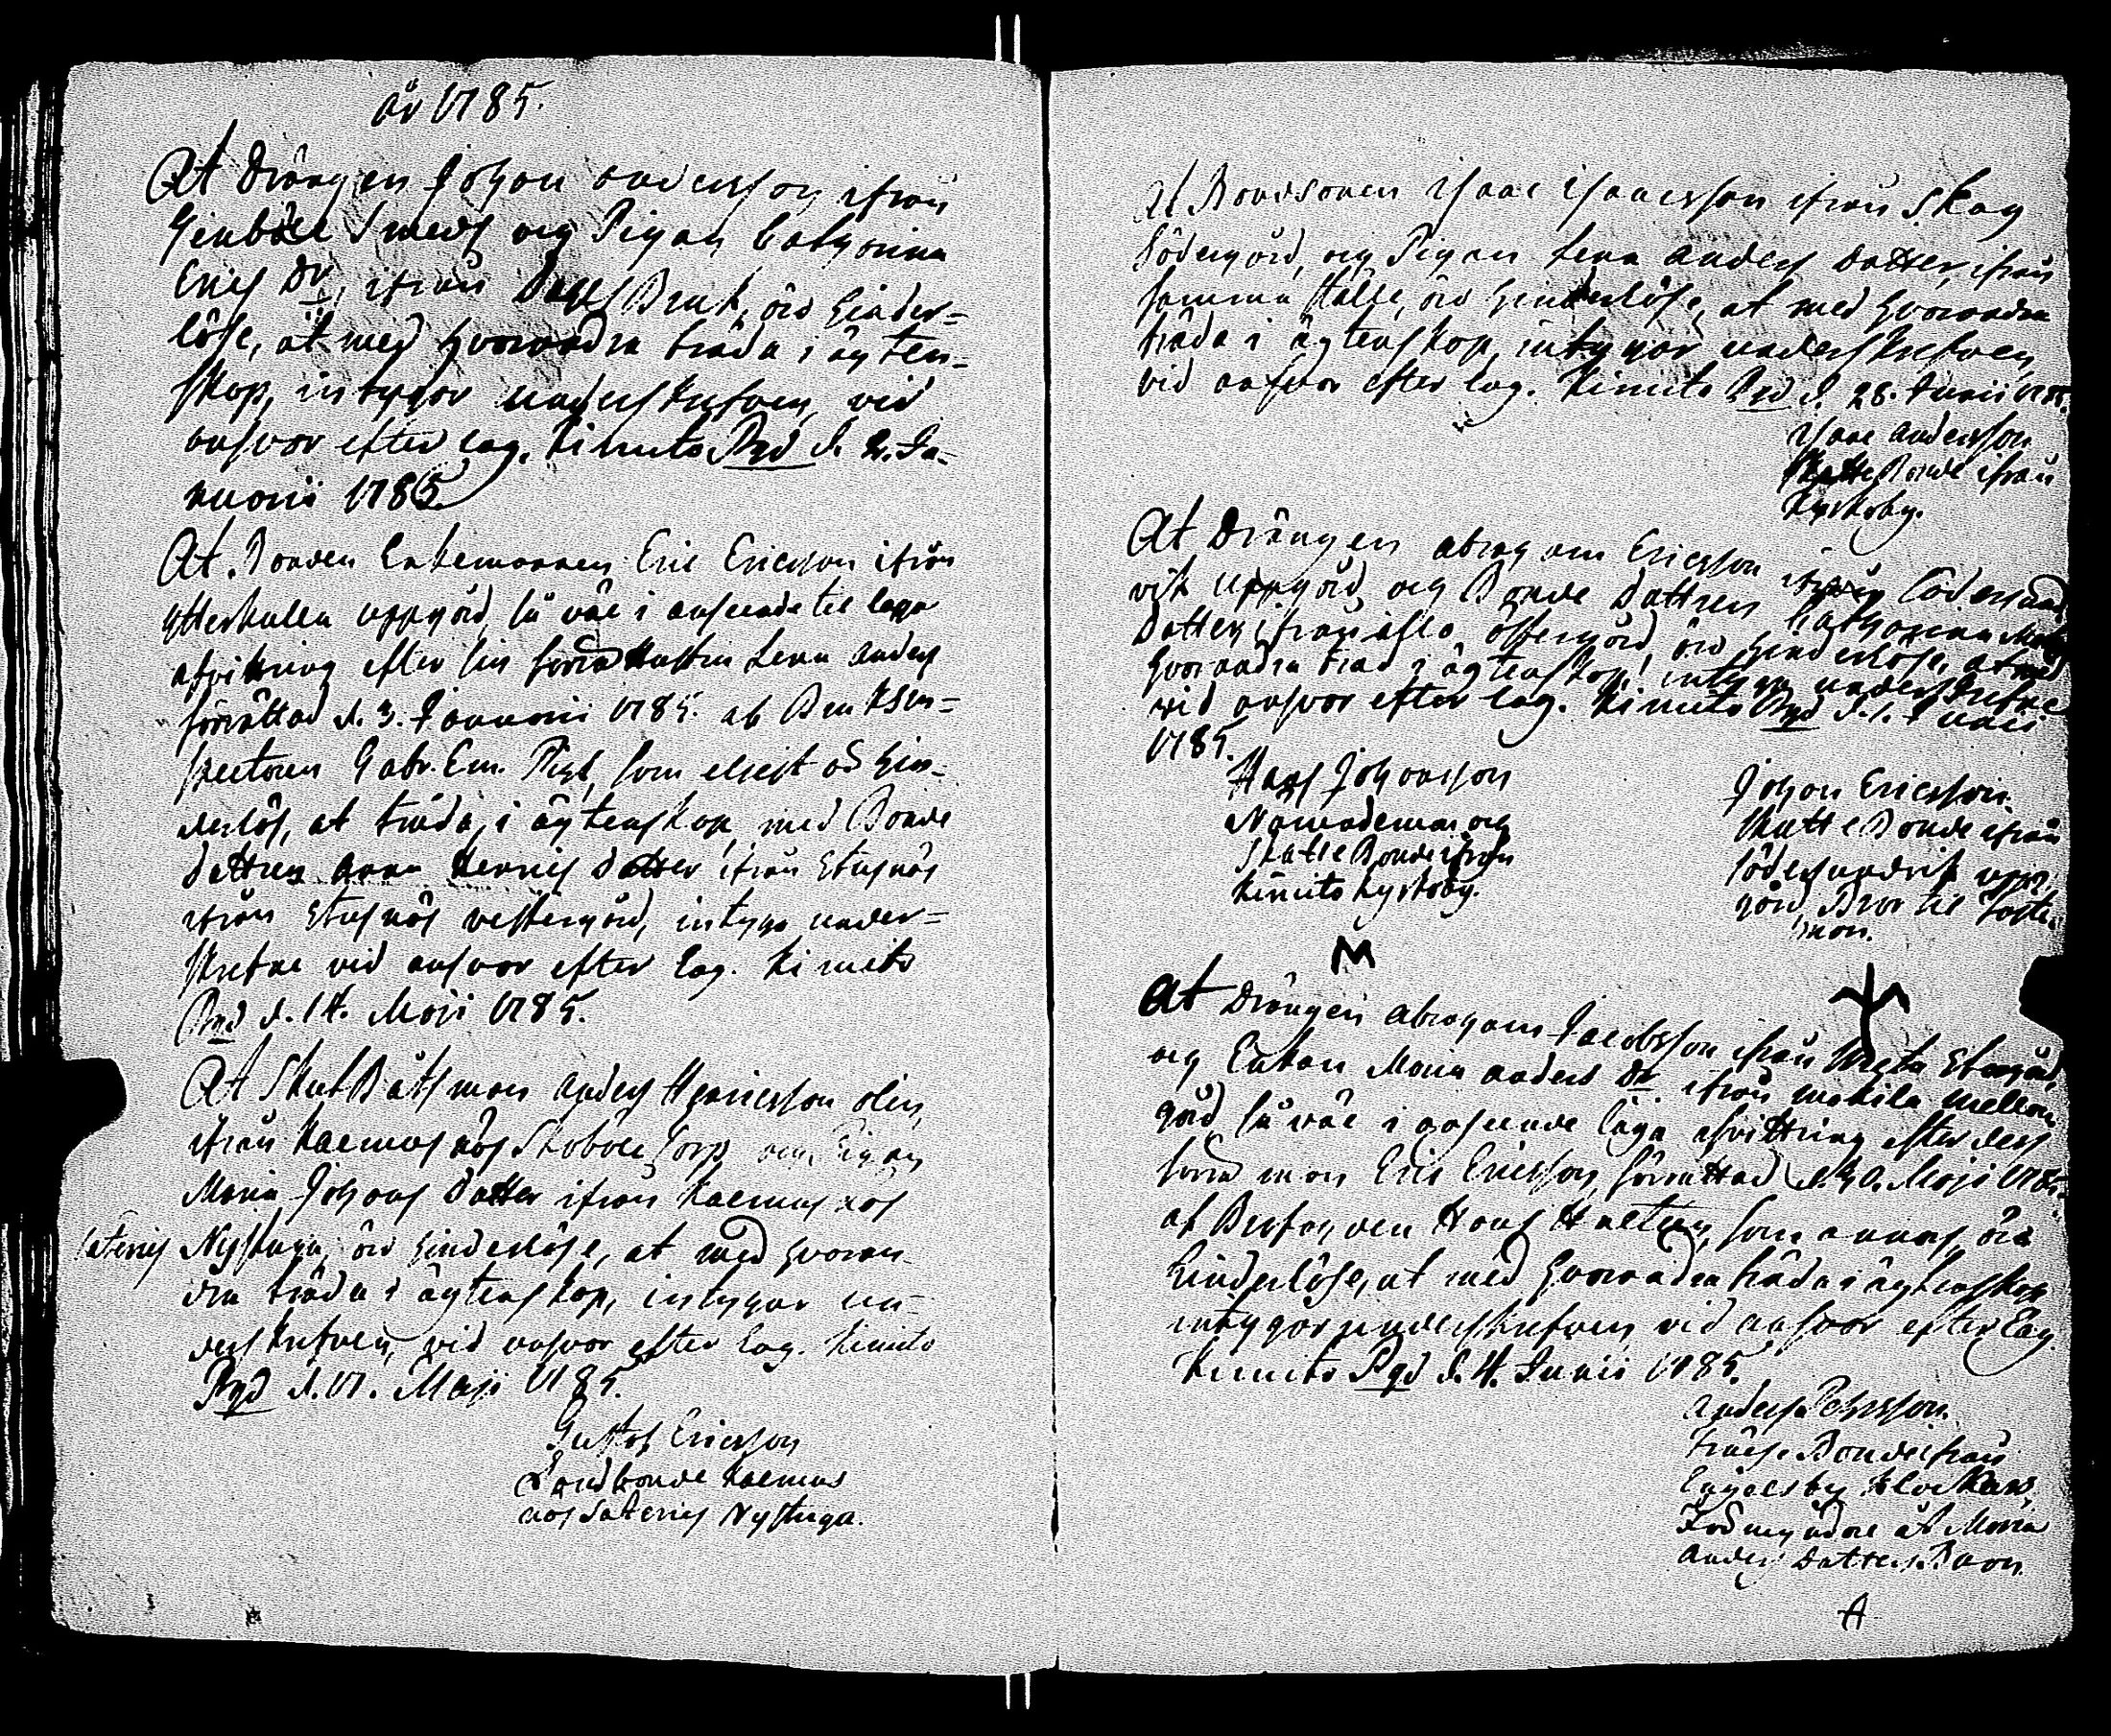 år 1785.
At Drängen Johan andersson ifrån
Genböle Smeds och Pigan Catharina
Erics Dr ifrån Dahls Bruk, äro hinder-
löse, at med hvarandra träda i ägten-
skap, intygar underskrefven, vid
ansvar efter lag. Kimito Prgd d. 2. Ja-
nuarii 1785.
At Bonden Enkemannen Eric Ericsson ifrån
Ytterkulla uppgård, så väl i anseende til laga
afvittring efter sin förra hustru Lena anders
förrättad d. 3. Januarii 1785. af Bruksin-
spectoren Gabr. Em. Pihl, som eljest är hin-
derlös, at träda i ägtenskap med Bonde
dottren anna Henrics dotter ifrån Stusnäs
ifrån Stusnäs vestergård, intyga under-
skrefne vid ansvar efter lag. Kimito
Prgd d. 14. Maji 1785.
At Skutbåtsman anders Henricsson Olin
ifrån och Pigan
Maria Johans dotter ifrån
Sateris Nystuga, äro hinderlöse, at med hvaran-
dra träda i ägtenskap, intygar un-
derskrefven, vid ansvar efter lag. Kimito
Prgd d. 17. Maji 1785.
Gustaf Ericsson
Landbonde
Sateris Nystuga.
At Bondsonen Isaac Isaacsson ifrån Skog
Södergård, och Pigan Lena anders dotter, ifrån
samma ställe, äro hinderlöse, at med hvarandra
träda i ägtenskap, intygar underskrefven
vid ansvar efter lag. Kimito Prgd d. 28. Junii 1785.
Isaac andersson
Skatte Bonde ifrån
Kyrkoby.
At Drängen abraham Ericsson ifrån Södersund
vik Uppgård och Bonde dottren Catharina Matts
dotter, ifrån östergård, äro hinderlöse, at med
hvarandra träd i ägtenskap, intyga underskrefne
vid ansvar efter lag. Kimito Prgd d. 1. Junii
1785.
Hans Johansson
Nämndeman och
Skatte Bonde ifrån
Kimito Kyrkoby.
M
Johan Ericsson
Skatte Bonde ifrån
Södersundvik upp-
gård, Bror til
man.
At Drängen abraham Jacobsson ifrån
och Enkan Maria anders Dr ifrån mellan
gård så väl i anseende laga afvittring efter dess
förra man Eric Ericsson, förrättad d. 30. Maji 1785.
af som annars äro
hinderlöse, at med hvarandra träda i ägtenskap
intygar underskrefven vid ansvar efter Lag.
Kimito Prgd d. 4. Junii 1785.
anders Pehrsson
Frälse Bonde ifrån
Engelsby Klockars,
Förmyndare åt Maria
anders dotters Barn.
A